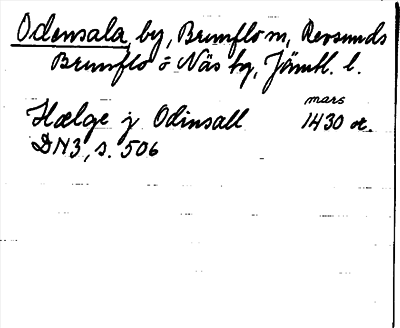 Odensala, by, Brunflo sn, Revsunds
Brunflo o Näs tg, Jämtl. l.
Hælge j Odinsall mars 1430 or.
DN3, s. 506